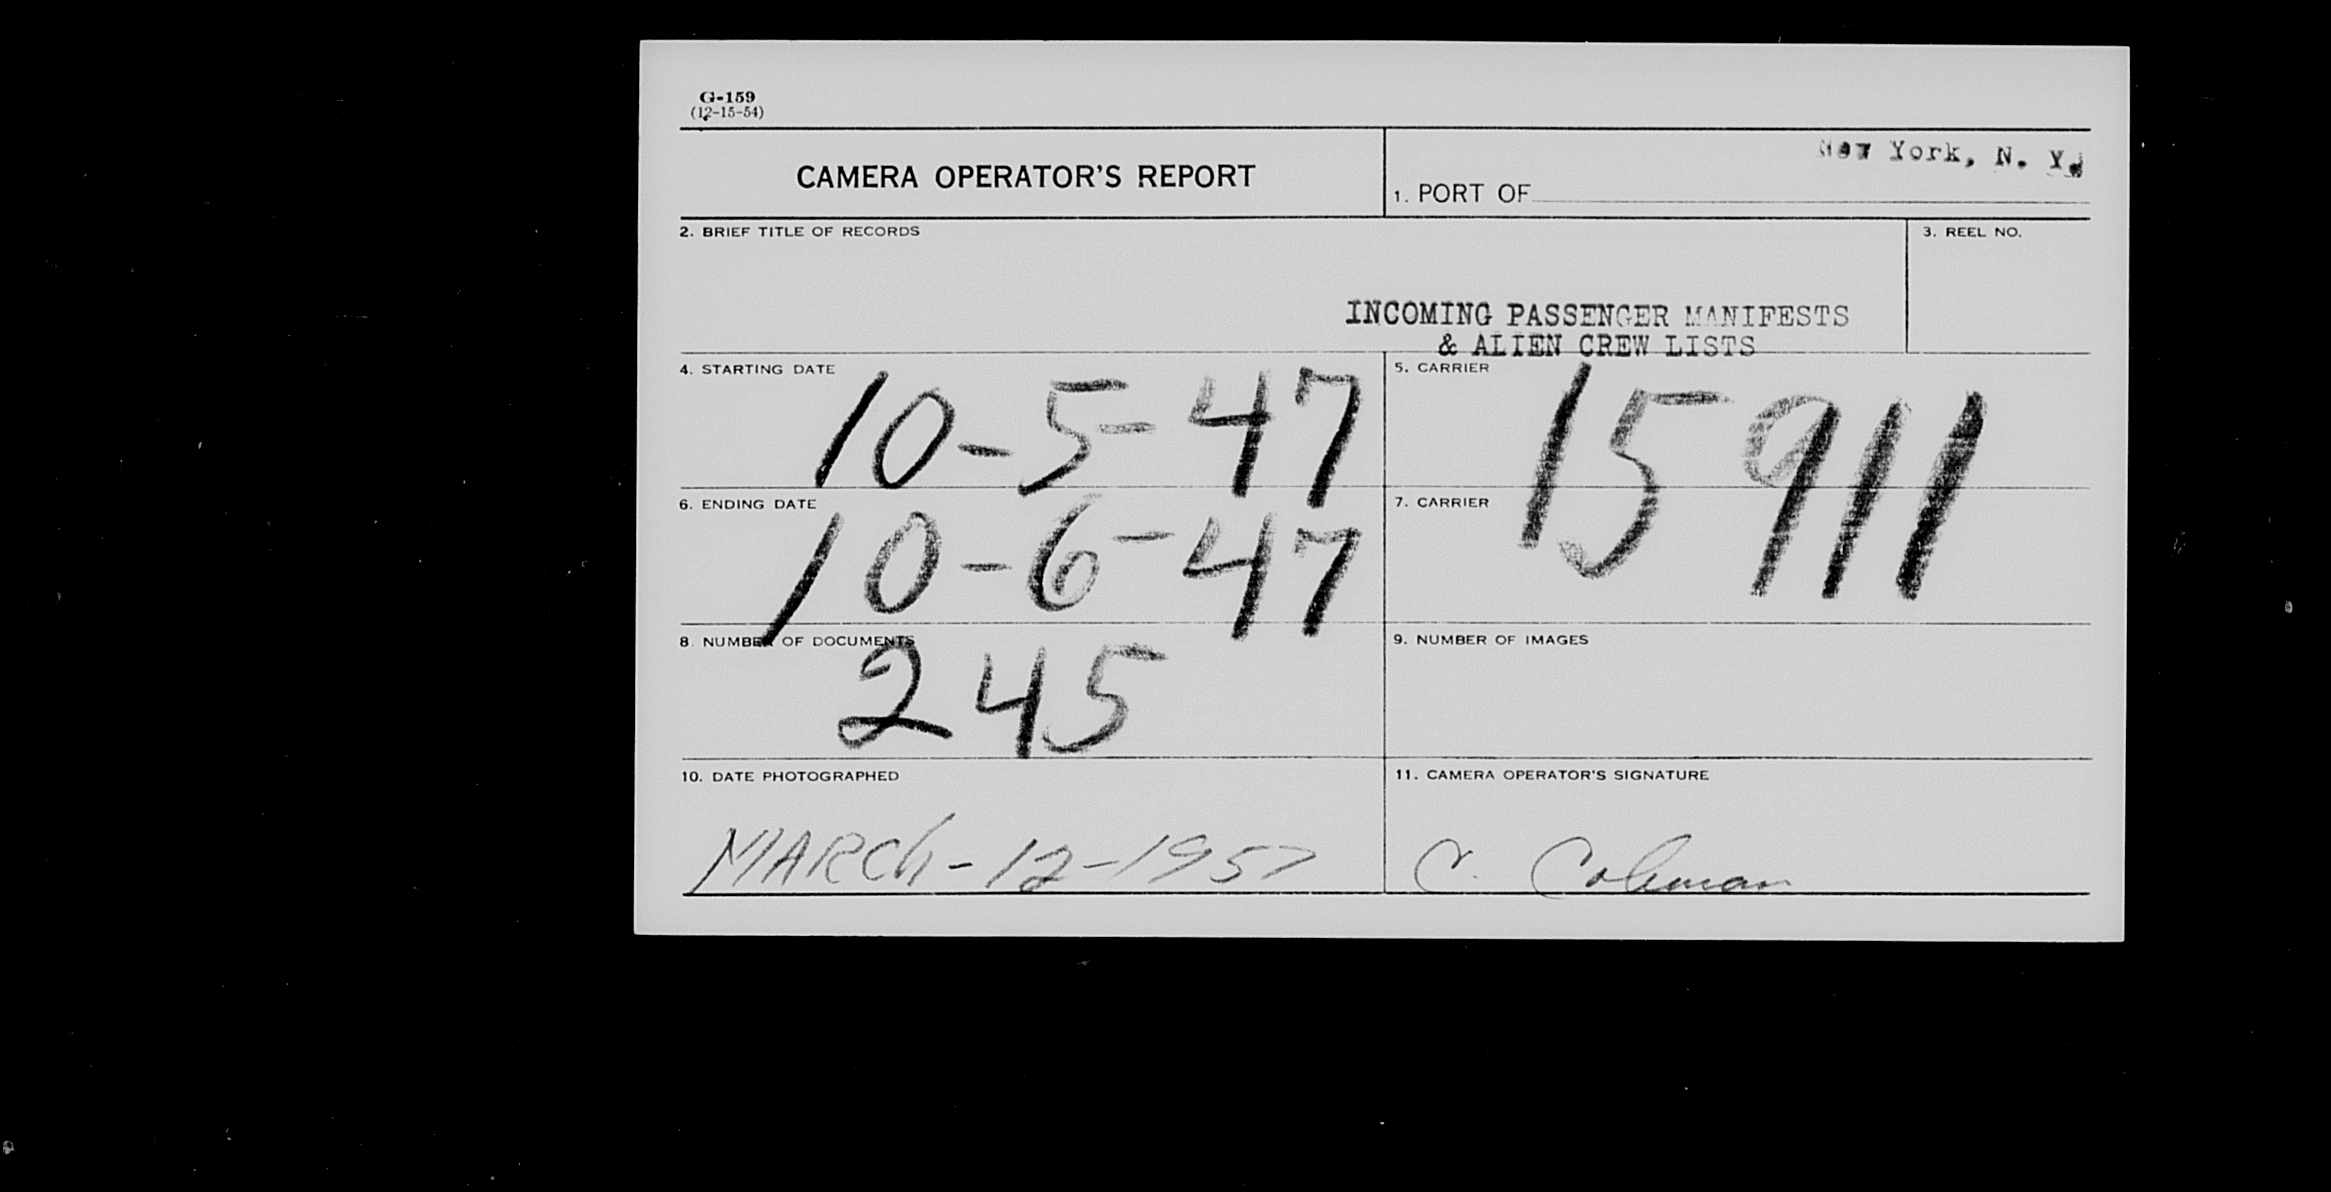 G-159
(12-15-54)
CAMERA OPERATOR'S REPORT
New York, N. Y.
1. PORT OF
2. BRIEF TITLE OF RECORDS
3. REEL NO.
INCOMING PASSENGER MANIFESTS
& ALIEN CREW LISTS
4. STARTING DATE
10-5-47
5. CARRIER
15911
6. ENDING DATE
10-6-47
7. CARRIER
8. NUMBER OF DOCUMENTS
245
9. NUMBER OF IMAGES
10. DATE PHOTOGRAPHED
MARCh-12-1957
11. CAMERA OPERATOR'S SIGNATURE
C. Coleman